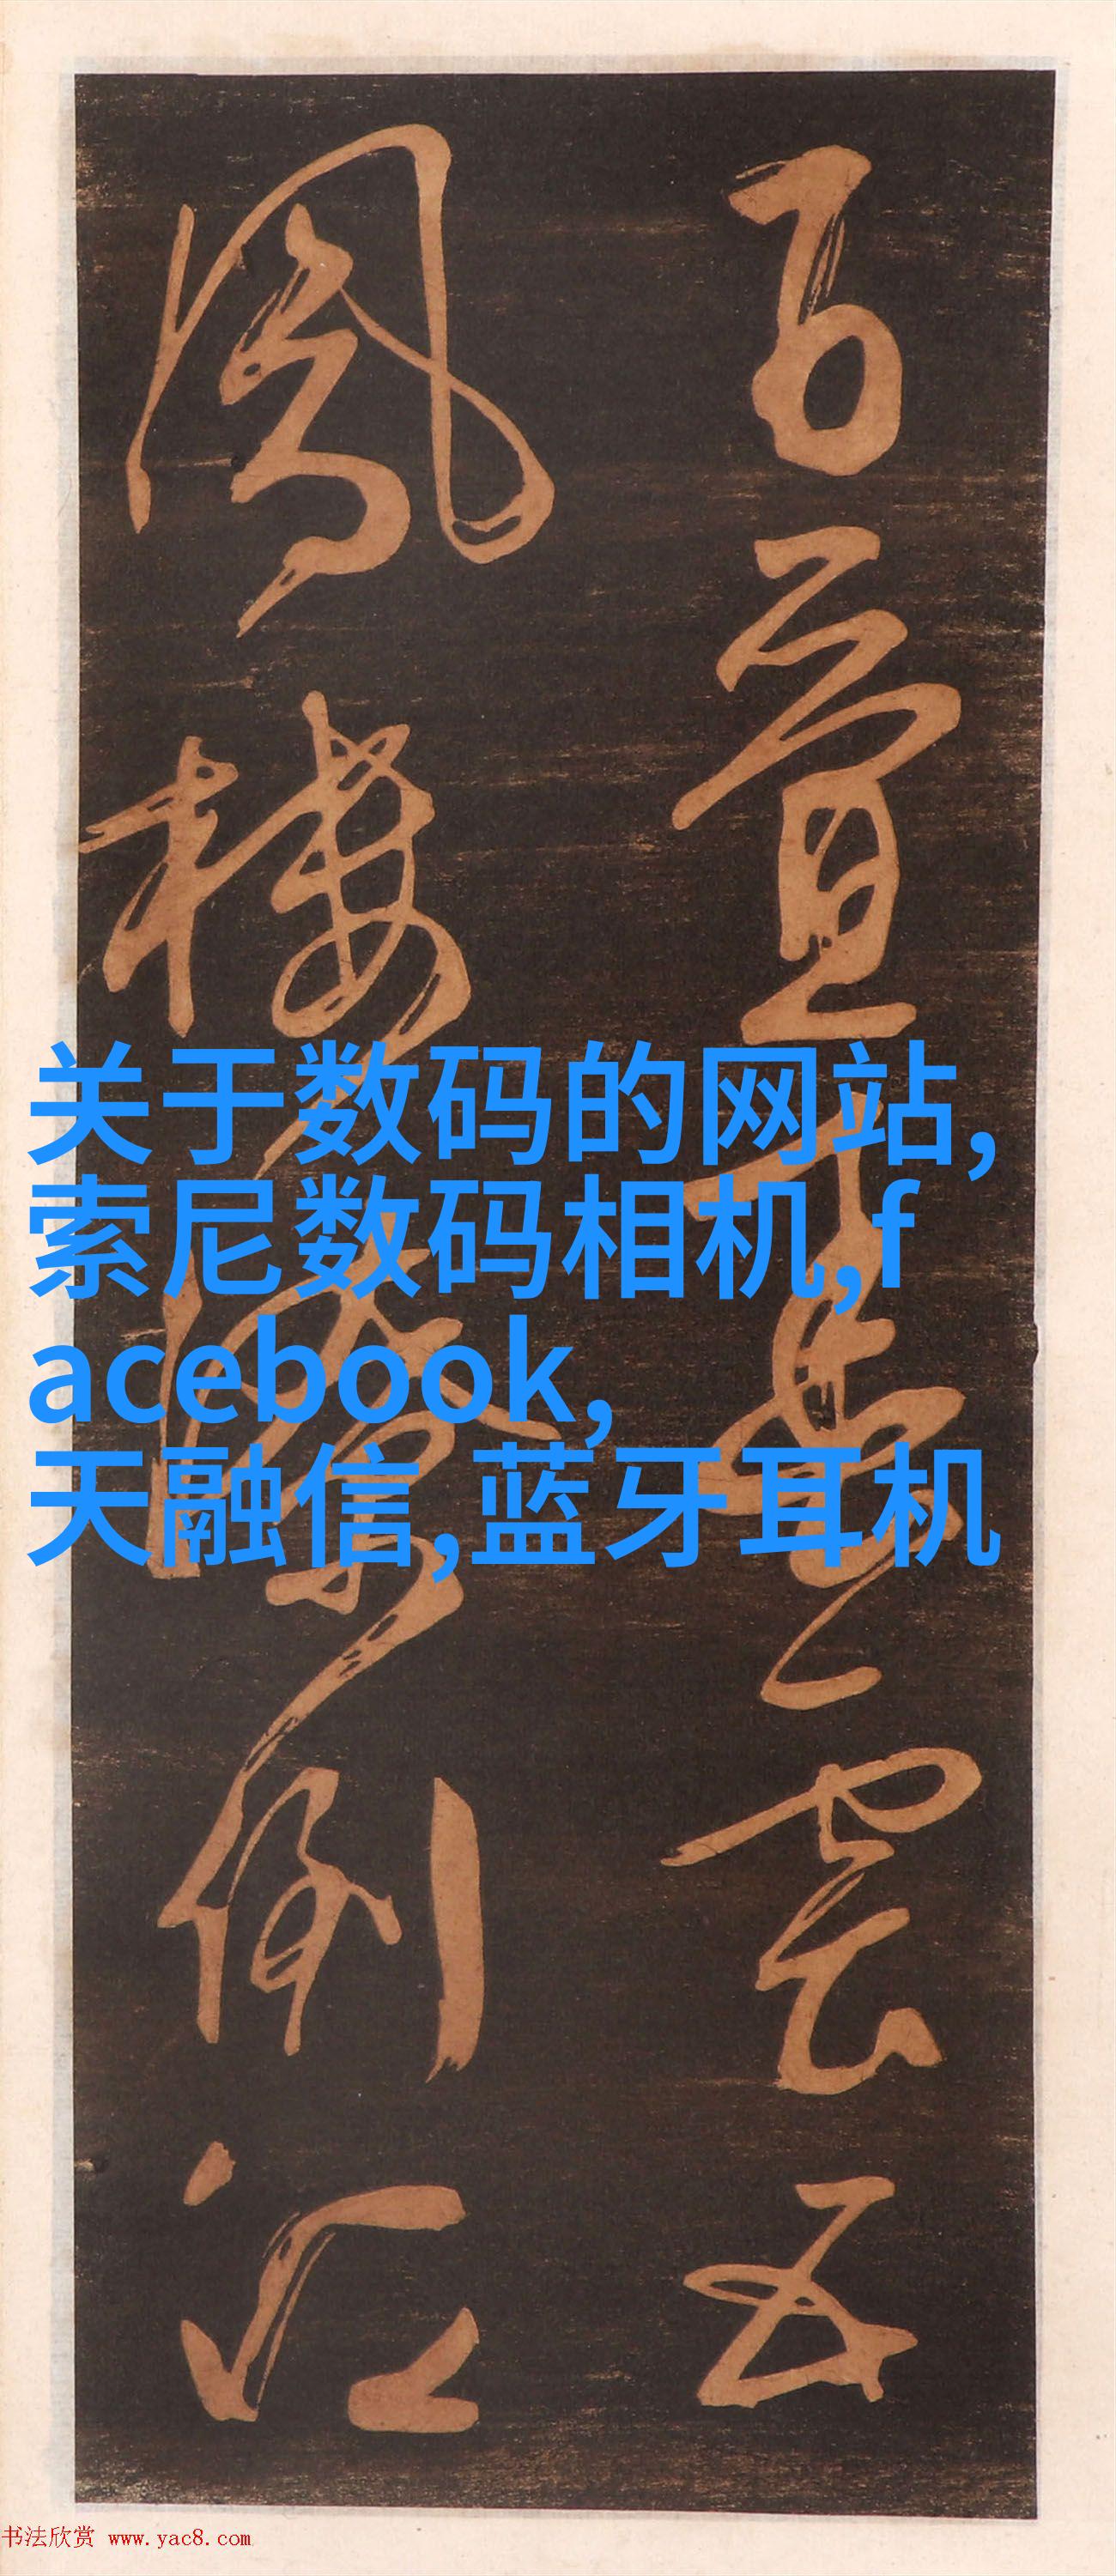 百疊千雲五
鳳樓倒江
关于数码的网站,
索尼数码相机,f
acebook,
天融信,蓝牙耳机
书法欣赏 www.yac8.com